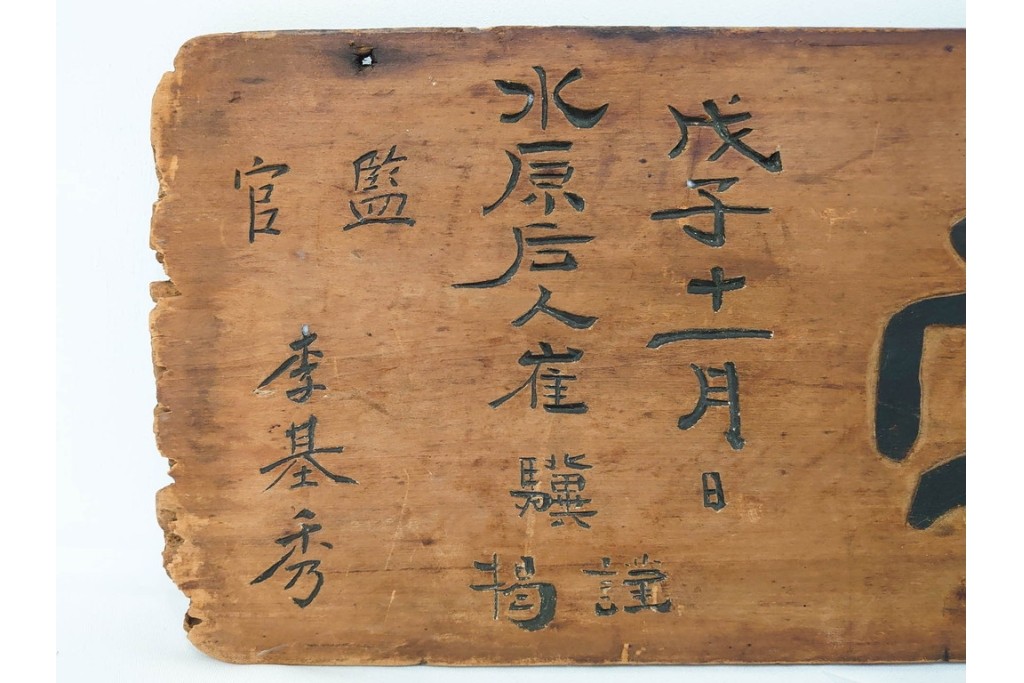 戊子十一月日
水原后人崔驥謹揭
監官
李基秀